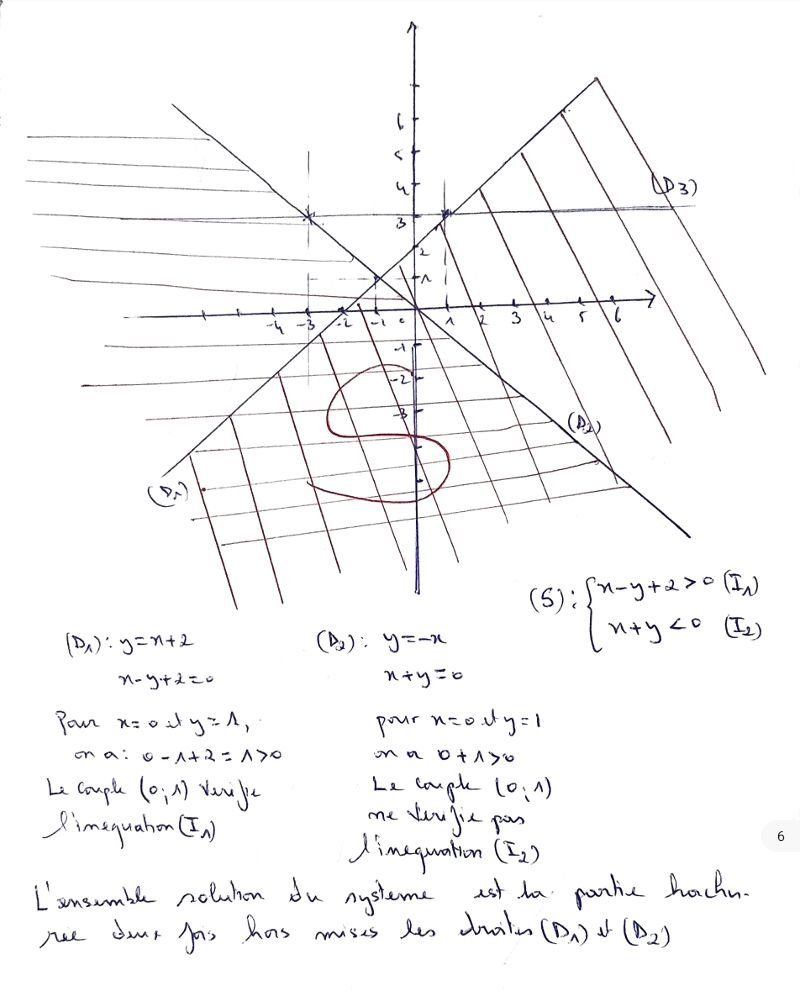 6
5
4
(D3)
3
2
1
-4 -3 -2 -1 0 1 2 3 4 5 6
-1
-2
-3
(D2)
S
(D1)
(S): { x-y+2>0 (I1)
x+y<0 (I2)
(D1): y=x+2
(D2): y=-x
x-y+2=0
x+y=0
Pour x=0 et y=1,
on a: 0-1+2=1>0
Le couple (0;1) verifie
l'inequation (I1)
pour x=0 et y=1
on a 0+1>0
Le couple (0;1)
ne verifie pas
l'inequation (I2)
6
L'ensemble solution du systeme est la partie hachu-
ree deux fois hors mises les droites (D1) et (D2)